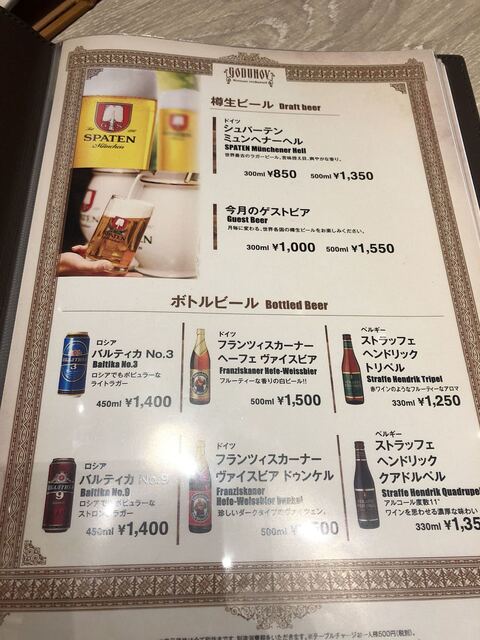 GODUNOV
樽生ビール Draft beer
SPATEN
München
SPATEN
ドイツ
シュパーテン
ミュンヘナーヘル
SPATEN Münchener Hell
世界最古のラガービール。苦味控え目、爽やかな香り。
300ml ¥850 500ml ¥1,350
今月のゲストビア
Guest Beer
月毎に変わる、世界各国の樽生ビールをお楽しみください。
300ml ¥1,000 500ml ¥1,550
ボトルビール Bottled Beer
ロシア
バルティカ No.3
Baltika No.3
ロシアでもポピュラーな
ライトラガー
450ml ¥1,400
ドイツ
フランツィスカーナー
ヘーフェ ヴァイスビア
Franziskaner Hefe-Weissbier
フルーティーな香りの白ビール!!
500ml ¥1,500
ベルギー
ストラッフェ
ヘンドリック
トリペル
Straffe Hendrik Tripel
赤ワインのようなフルーティーなアロマ
330ml ¥1,250
ロシア
バルティカ No.9
Baltika No.9
ロシアでポピュラーな
ストロングラガー
450ml ¥1,400
ドイツ
フランツィスカーナー
ヴァイスビア ドゥンケル
Franziskaner
Hefe-Weissbier Dunkel
珍しいダークタイプのヴァイツェン。
500ml
ベルギー
ストラッフェ
ヘンドリック
クアドルペル
Straffe Hendrik Quadrupel
アルコール度数11°
ワインを思わせる濃厚な味わい
330ml ¥1,35
※テーブルチャージお一人様500円(税別)。